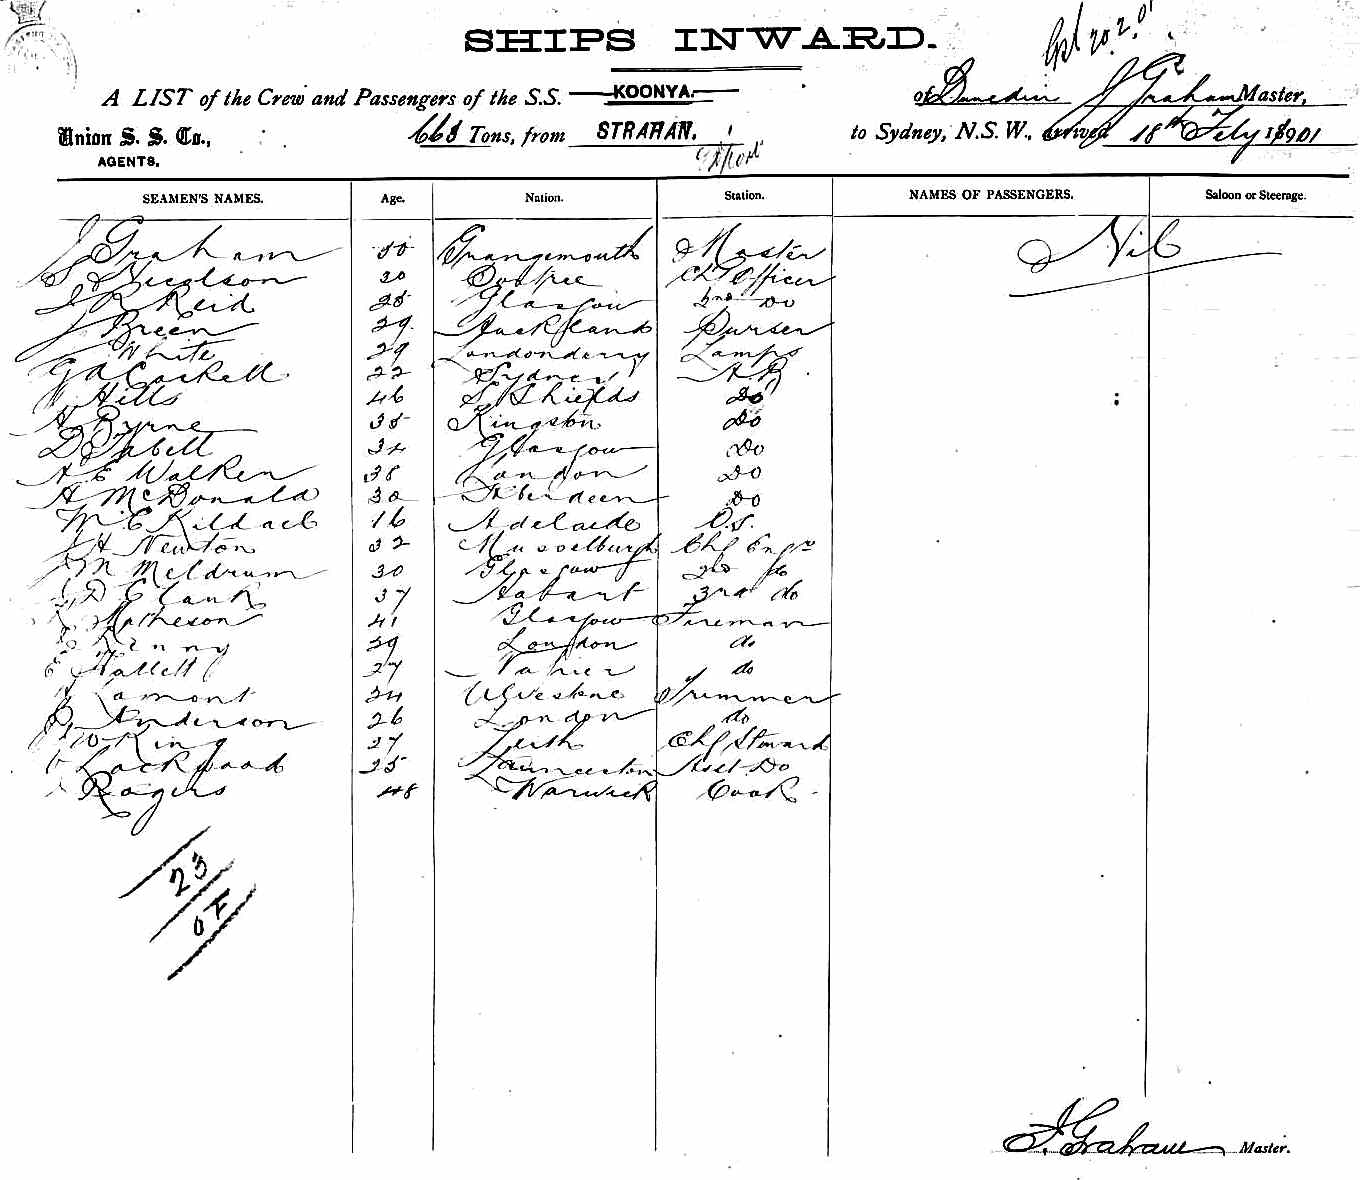 SHIPS INWARD.
A LIST of the Crew and Passengers of the S.S. KOONYA. of Dunedin J Graham Master,
Union S. S. Co., 668 Tons, from STRAHAN. to Sydney, N.S.W., arrived 18th Feby 1901
AGENTS.
SEAMEN'S NAMES. Age. Nation. Station. NAMES OF PASSENGERS. Saloon or Steerage.
J Graham 50 Grangemouth Master Nil
Nicolson 30 Portree Chf Officer
J R Reid 25 Glasgow 2nd Do
J Breen 29 Auckland Purser
White 29 Londonderry Lamps
G A Cockell 22 Sydney A B
W Hills 46 S Shields Do
A Byrne 35 Kingston Do
D Tabett 34 Glasgow Do
A E Walken 38 London Do
A McDonald 30 Aberdeen Do
M C Kildael 16 Adelaide O.S.
J H Newton 32 Musselburgh Chf Engr
M Meldrum 30 Glasgow 2nd do
D Clark 37 Hobart 3rd do
Matheson 41 Glasgow Fireman
Kenny 29 London do
E Hallett 27 Napier do
Lamont 24 Ulverstone Trimmer
Anderson 26 London do
W King 27 Leith Chf Steward
Lockwood 25 Launceston Asst Do
Rogers 48 Warwick Cook
23
J. Graham Master.